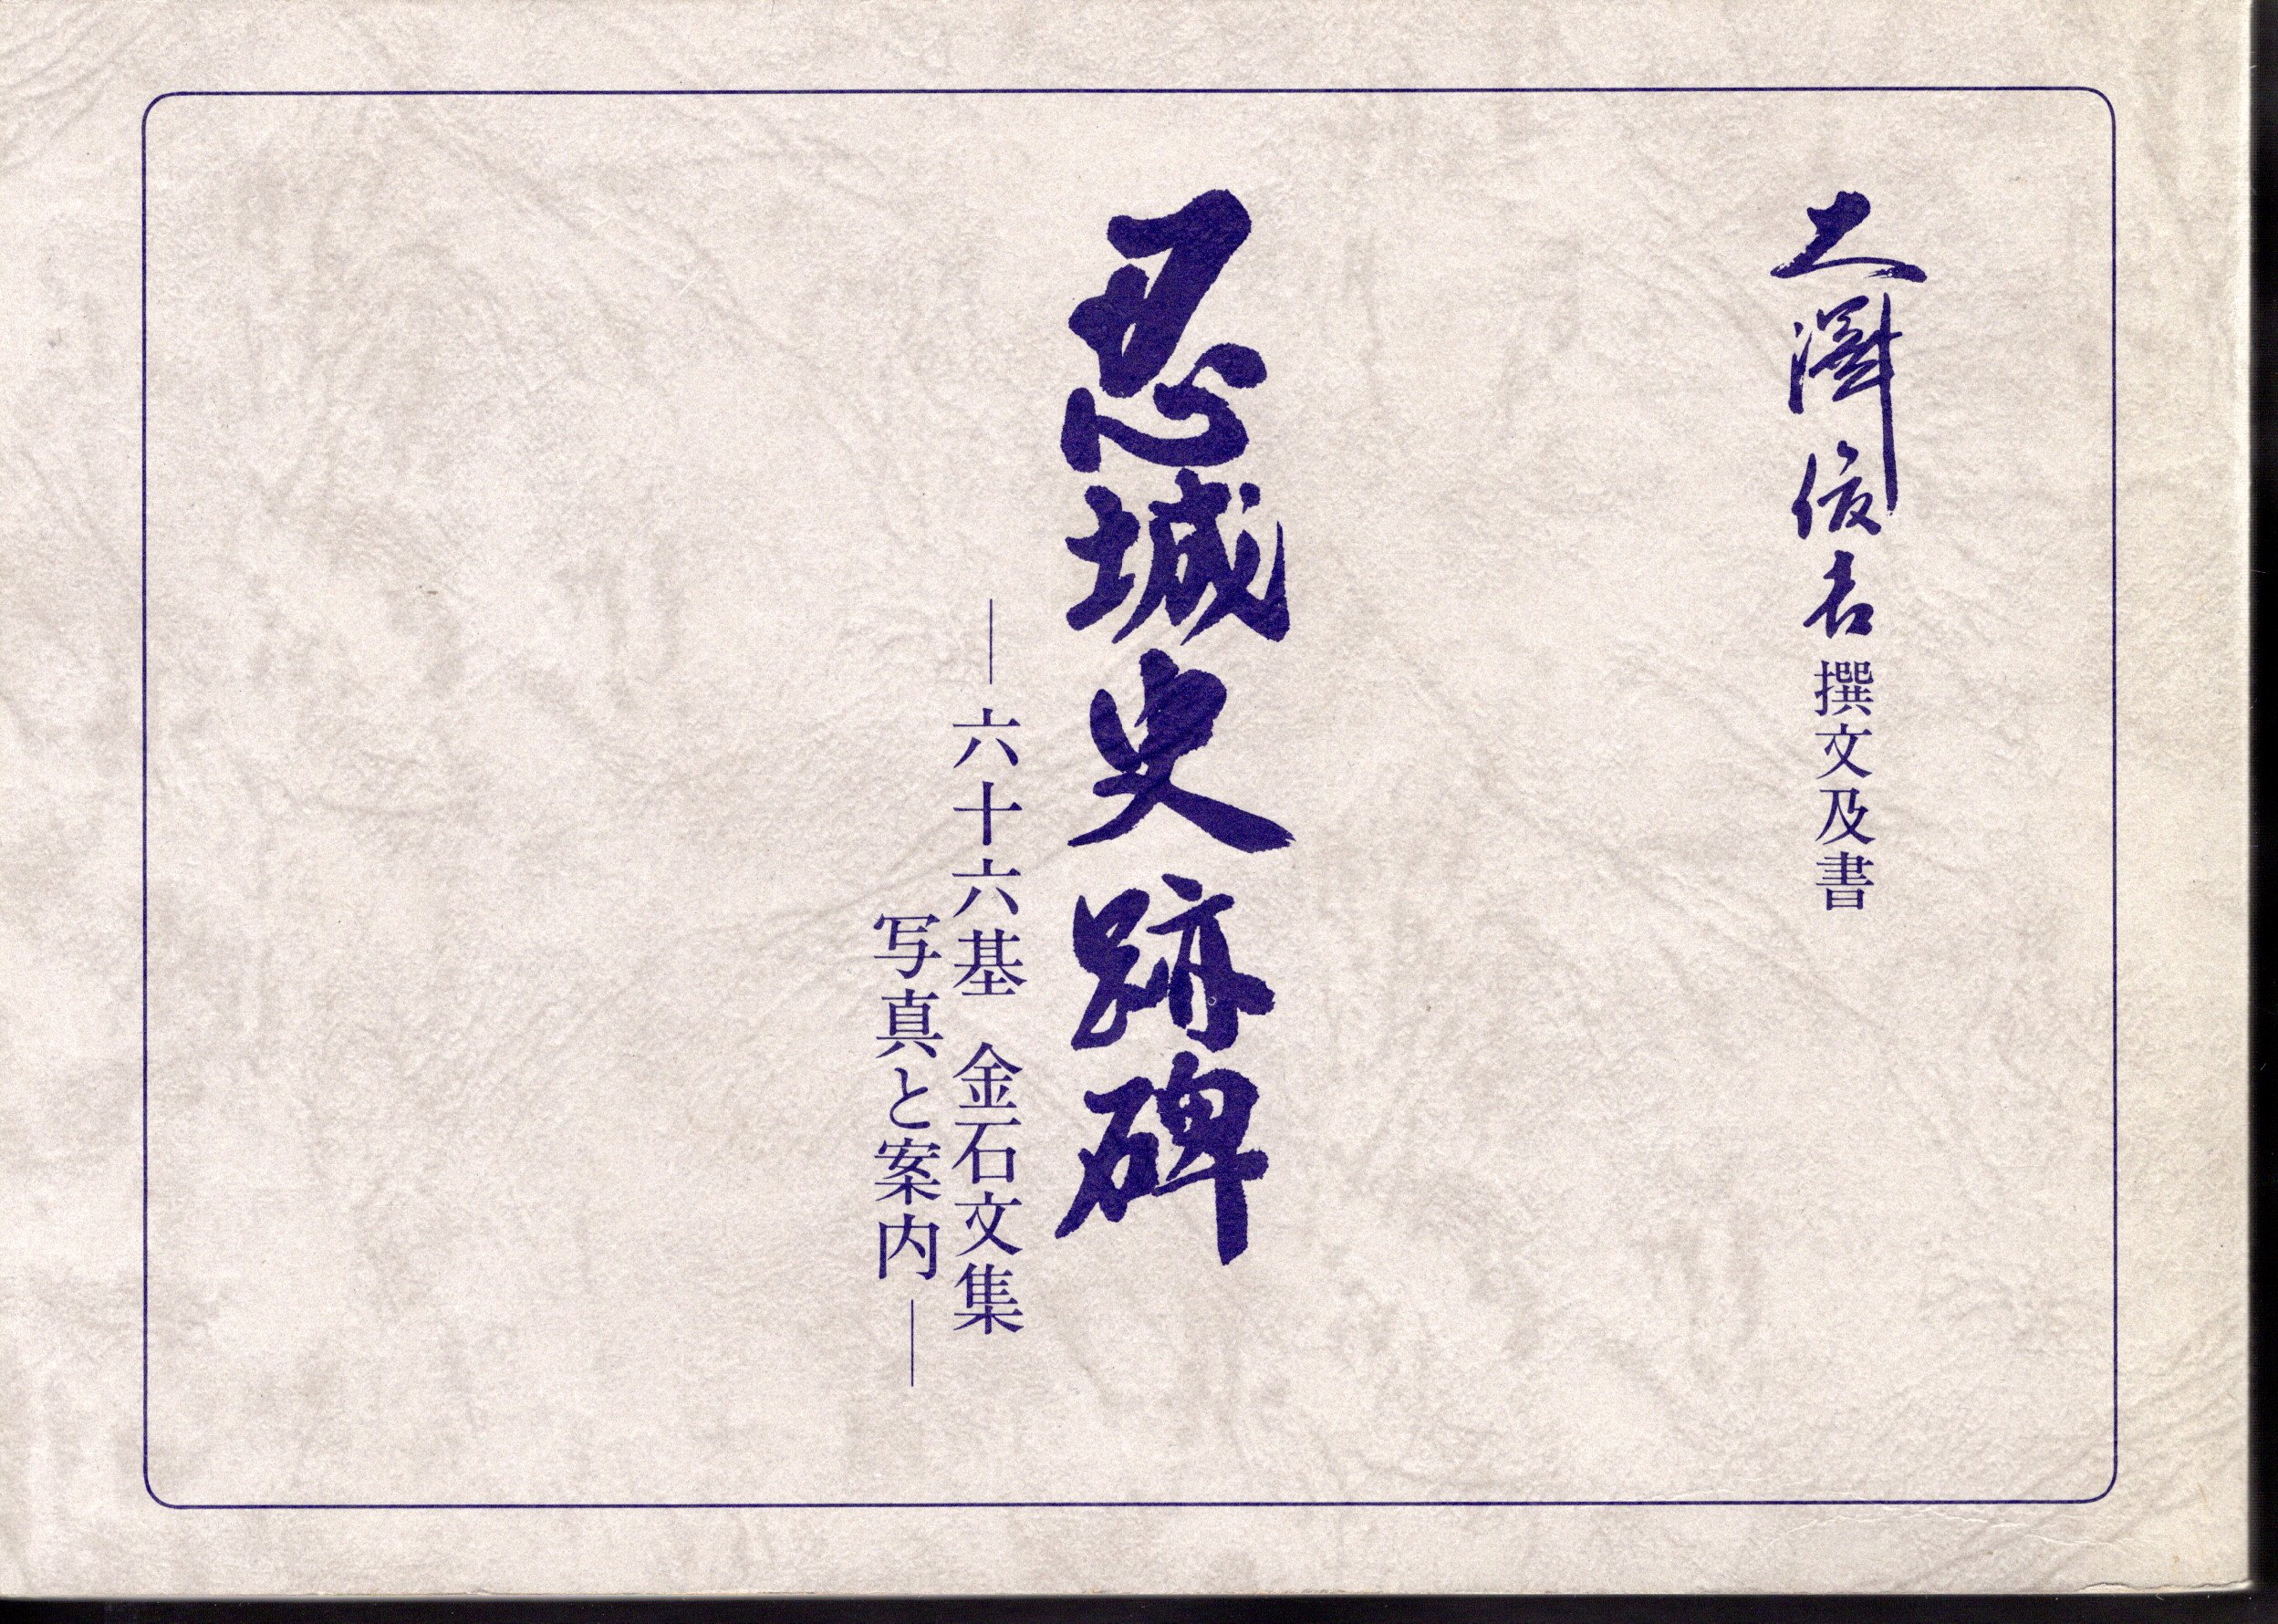 大澤俊吉 撰文及書
忍城史跡碑
―六十六基 金石文集
写真と案内―